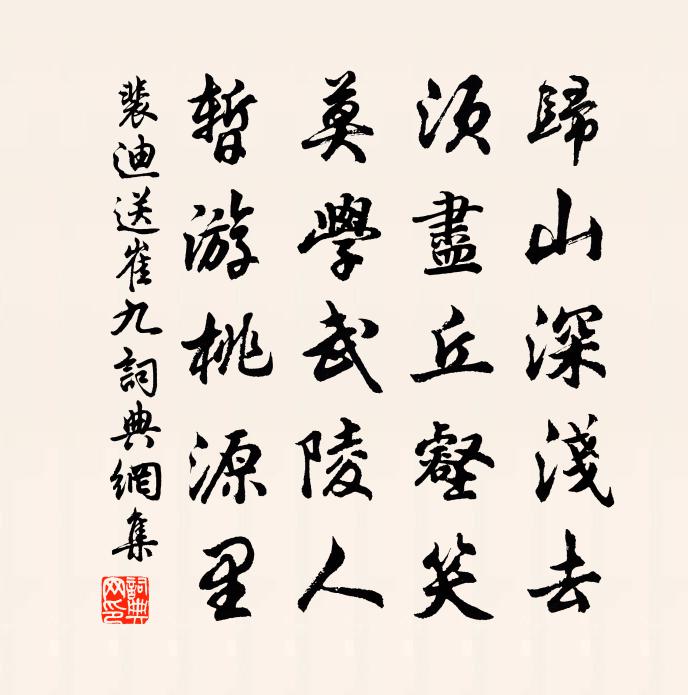 歸山深淺去
須盡丘壑笑
莫學武陵人
暫游桃源里
裴迪送崔九詞典網集
詞典網印